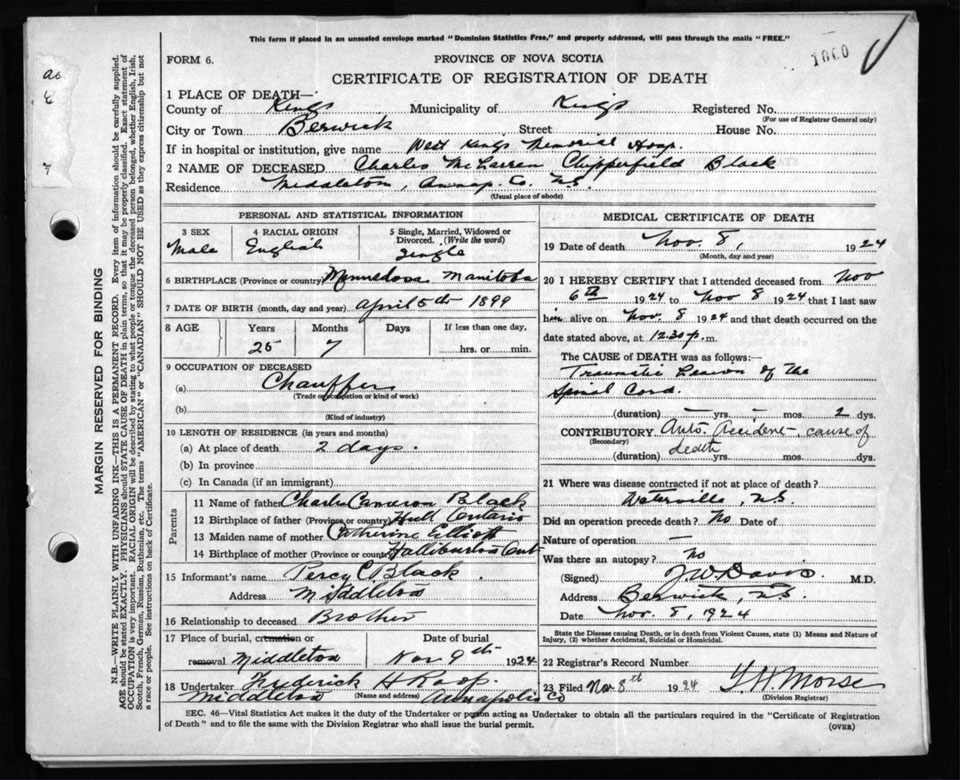 This form if placed in an unsealed envelope marked "Dominion Statistics Free," and properly addressed, will pass through the mails "FREE."
1060
FORM 6.
PROVINCE OF NOVA SCOTIA
CERTIFICATE OF REGISTRATION OF DEATH
1 PLACE OF DEATH—
County of Kings Municipality of Kings Registered No.
(For use of Registrar General only)
City or Town Berwick Street House No.
If in hospital or institution, give name West Kings Memorial Hosp.
2 NAME OF DECEASED Charles McLarren Chipperfield Black
Residence Middleton, Annap. Co. N.S.
(Usual place of abode)
PERSONAL AND STATISTICAL INFORMATION
3 SEX 4 RACIAL ORIGIN 5 Single, Married, Widowed or Divorced. (Write the word)
Male English Single
6 BIRTHPLACE (Province or country) Minnedosa Manitoba
7 DATE OF BIRTH (month, day and year) April 5th 1899
8 AGE Years Months Days If less than one day,
25 7 hrs. or min.
9 OCCUPATION OF DECEASED
(a) Chauffer
(Trade occupation or kind of work)
(b)
(Kind of industry)
10 LENGTH OF RESIDENCE (in years and months)
(a) At place of death 2 days.
(b) In province
(c) In Canada (if an immigrant)
Parents
11 Name of father Charles Cameron Black
12 Birthplace of father (Province or country) Hull Ontario
13 Maiden name of mother Catherine Elliott
14 Birthplace of mother (Province or country) Halliburton Ont
15 Informant's name Percy C. Black
Address Middleton
16 Relationship to deceased Brother
17 Place of burial, cremation or Date of burial
removal Middleton Nov 9th 1924
18 Undertaker Frederick H Roop
(Name and address)
Middleton Annapolis Co
MEDICAL CERTIFICATE OF DEATH
19 Date of death Nov. 8, 1924
(Month, day and year)
20 I HEREBY CERTIFY that I attended deceased from Nov
6th 1924 to Nov 8 1924 that I last saw
him alive on Nov. 8 1924 and that death occurred on the
date stated above, at 12.30 p. m.
The CAUSE of DEATH was as follows:—
Traumatic Lesion of the
Spinal Cord.
(duration) — yrs. — mos. 2 dys.
CONTRIBUTORY Auto. Accident, cause of
(Secondary)
death
(duration) yrs. mos. dys.
21 Where was disease contracted if not at place of death?
Waterville, N.S.
Did an operation precede death? No Date of
Nature of operation —
Was there an autopsy? No
(Signed) J W Davis. M.D.
Address Berwick, N.S.
Date Nov. 8, 1924
State the Disease causing Death, or in death from Violent Causes, state (1) Means and Nature of
Injury, (2) whether Accidental, Suicidal or Homicidal.
22 Registrar's Record Number
23 Filed Nov 8th 1924 Morse
(Division Registrar)
SEC. 46—Vital Statistics Act makes it the duty of the Undertaker or person acting as Undertaker to obtain all the particulars required in the "Certificate of Registration
of Death" and to file the same with the Division Registrar who shall issue the burial permit.
(OVER)
MARGIN RESERVED FOR BINDING
N.B.—WRITE PLAINLY WITH UNFADING INK—THIS IS A PERMANENT RECORD. Every item of information should be carefully supplied.
AGE should be stated EXACTLY. PHYSICIANS should STATE CAUSE OF DEATH in plain terms, so that it may be properly classified. Exact statement of
OCCUPATION is very important. RACIAL ORIGIN will be described by stating to what people or tongue the deceased person belonged, whether English, Irish,
Scotch, French, German, Russian, Ruthenian, etc. The terms "AMERICAN" or "CANADIAN" SHOULD NOT BE USED as they express citizenship but not
a race or people. See instructions on back of Certificate.